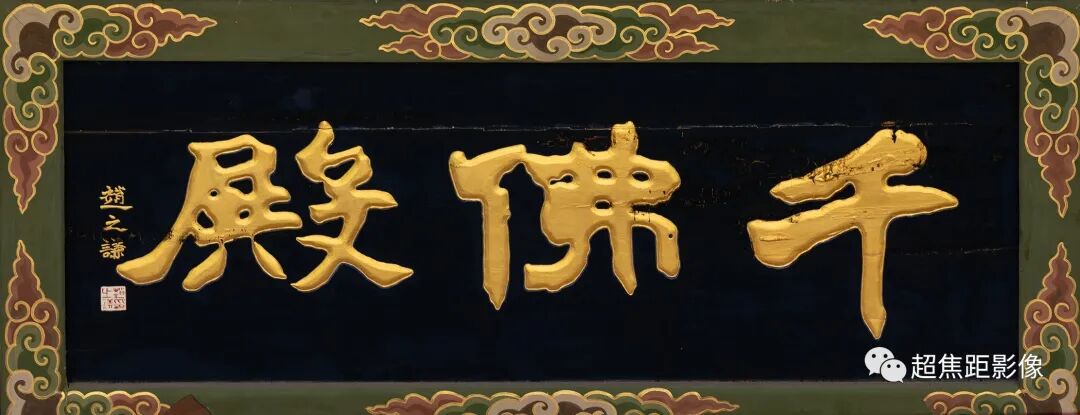 千佛殿
趙之謙
超焦距影像